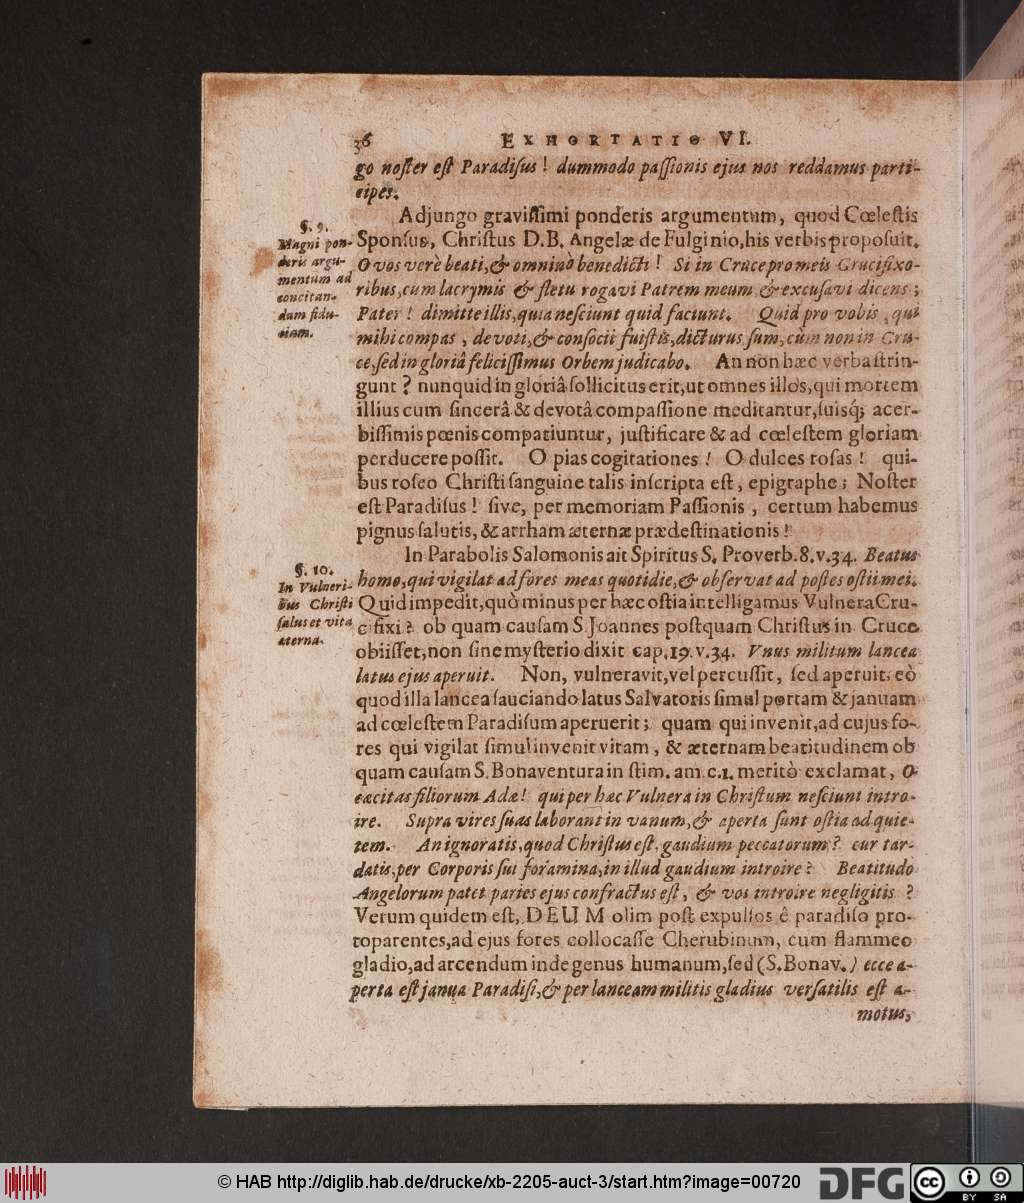 36 EXHORTATIO VI.
go noſter eſt Paradiſus! dummodo paſſionis ejus nos reddamus parti-
cipes.
Adjungo graviſſimi ponderis argumentum, quod Cœleſtis
Sponſus, Chriſtus D.B. Angelæ de Fulginio, his verbis propoſuit.
O vos verè beati, & omninò benedicti! Si in Cruce pro meis Crucifixo-
ribus, cum lacrymis & fletu rogavi Patrem meum & excuſavi dicens;
Pater! dimitte illis, quia neſciunt quid faciunt. Quid pro vobis, qui
mihi compas, devoti, & conſocii fuiſtis, dicturus ſum, cùm non in Cru-
ce, ſed in gloriâ feliciſſimus Orbem judicabo. An non hæc verba ſtrin-
gunt? nunquid in gloriâ ſollicitus erit, ut omnes illos, qui mortem
illius cum ſincerâ & devotâ compaſſione meditantur, ſuisq́; acer-
biſſimis pœnis compatiuntur, juſtificare & ad cœleſtem gloriam
perducere poſſit. O pias cogitationes! O dulces roſas! qui-
bus roſeo Chriſti ſanguine talis inſcripta eſt, epigraphe; Noſter
eſt Paradiſus! ſive, per memoriam Paſſionis, certum habemus
pignus ſalutis, & arrham æternæ prædeſtinationis!
§. 9.
Magni pon-
deris argu-
mentum ad
concitan-
dam fidu-
ciam.
In Parabolis Salomonis ait Spiritus S. Proverb. 8. v. 34. Beatus
homo, qui vigilat ad fores meas quotidie, & obſervat ad poſtes oſtii mei.
Quid impedit, quò minus per hæc oſtia intelligamus Vulnera Cru-
cifixi? ob quam cauſam S. Joannes poſtquam Chriſtus in Cruce
obiiſſet, non ſine myſterio dixit cap. 19. v. 34. Vnus militum lancea
latus ejus aperuit. Non, vulneravit, vel percuſſit, ſed aperuit: eò
quod illa lancea ſauciando latus Salvatoris ſimul portam & januam
ad cœleſtem Paradiſum aperuerit; quam qui invenit, ad cujus fo-
res qui vigilat ſimul invenit vitam, & æternam beatitudinem ob
quam cauſam S. Bonaventura in ſtim. am. c. 1. meritò exclamat, O
cacitas filiorum Adæ! qui per hæc Vulnera in Chriſtum neſciunt intro-
ire. Supra vires ſuas laborant in vanum, & aperta ſunt oſtia ad quie-
tem. An ignoratis, quod Chriſtus eſt, gaudium peccatorum? cur tar-
datis, per Corporis ſui foramina, in illud gaudium introire? Beatitudo
Angelorum patet paries ejus confractus eſt, & vos introire negligitis?
Verum quidem eſt, DEUM olim poſt expulſos é paradiſo pro-
toparentes, ad ejus fores collocaſſe Cherubinum, cum flammeo
gladio, ad arcendum inde genus humanum, ſed (S. Bonav.) ecce a-
perta eſt janua Paradiſi, & per lanceam militis gladius verſatilis eſt a-
motus,
§. 10.
In Vulneri-
bus Chriſti
ſalus et vita
æterna.
© HAB http://diglib.hab.de/drucke/xb-2205-auct-3/start.htm?image=00720
DFG
cc BY SA